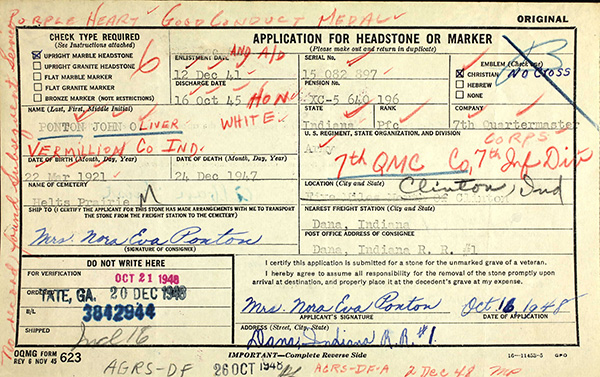 PURPLE HEART GOOD CONDUCT MEDAL
ORIGINAL
CHECK TYPE REQUIRED
(See Instructions attached)
UPRIGHT MARBLE HEADSTONE
UPRIGHT GRANITE HEADSTONE
FLAT MARBLE MARKER
FLAT GRANITE MARKER
BRONZE MARKER (NOTE RESTRICTIONS)
6
APPLICATION FOR HEADSTONE OR MARKER
(Please make out and return in duplicate)
ENLISTMENT DATE AND A/D
12 Dec 41
DISCHARGE DATE
16 Oct 45 HON
SERIAL No.
15 082 897
PENSION No.
XC-5 640 196
EMBLEM (Check one)
CHRISTIAN NO CROSS
HEBREW
NONE
NAME (Last, First, Middle Initial)
PONTON JOHN OLIVER
WHITE
STATE
Indiana
RANK
Pfc
COMPANY
7th Quartermaster
CORPS
VERMILLION CO IND.
U. S. REGIMENT, STATE ORGANIZATION, AND DIVISION
7th QMC Co, 7th Inf Div
DATE OF BIRTH (Month, Day, Year)
22 Mar 1921
DATE OF DEATH (Month, Day, Year)
24 Dec 1947
NAME OF CEMETERY
Helts Prairie
LOCATION (City and State)
Clinton, Ind
SHIP TO (I CERTIFY THE APPLICANT FOR THIS STONE HAS MADE ARRANGEMENTS WITH ME TO TRANSPORT THE STONE FROM THE FREIGHT STATION TO CEMETERY)
NEAREST FREIGHT STATION (City and State)
Dana, Indiana
POST OFFICE ADDRESS OF CONSIGNEE
Dana, Indiana R. R. #1
Mrs. Nora Eva Ponton
(SIGNATURE OF CONSIGNEE)
DO NOT WRITE HERE
FOR VERIFICATION
OCT 21 1948
ORDERED
TATE, GA. 20 DEC 1948
B/L
3842944
SHIPPED
I certify this application is submitted for a stone for the unmarked grave of a veteran.
I hereby agree to assume all responsibility for the removal of the stone promptly upon arrival at destination, and properly place it at the decedent's grave at my expense.
Mrs. Nora Eva Ponton
Oct. 16, 1948
APPLICANT'S SIGNATURE
DATE
ADDRESS (Street, City, State)
Dana, Indiana R.R. #1.
OQMG FORM 623
REV 6 NOV 45
IMPORTANT—Complete Reverse Side
16—11453-5 GPO
AGRS-DF
26 OCT 1948
AGRS-DF-A
2 Dec 48